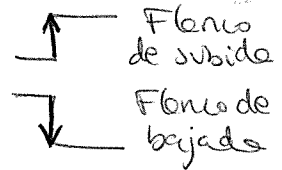 Flanco
de subida
Flanco de
bajada